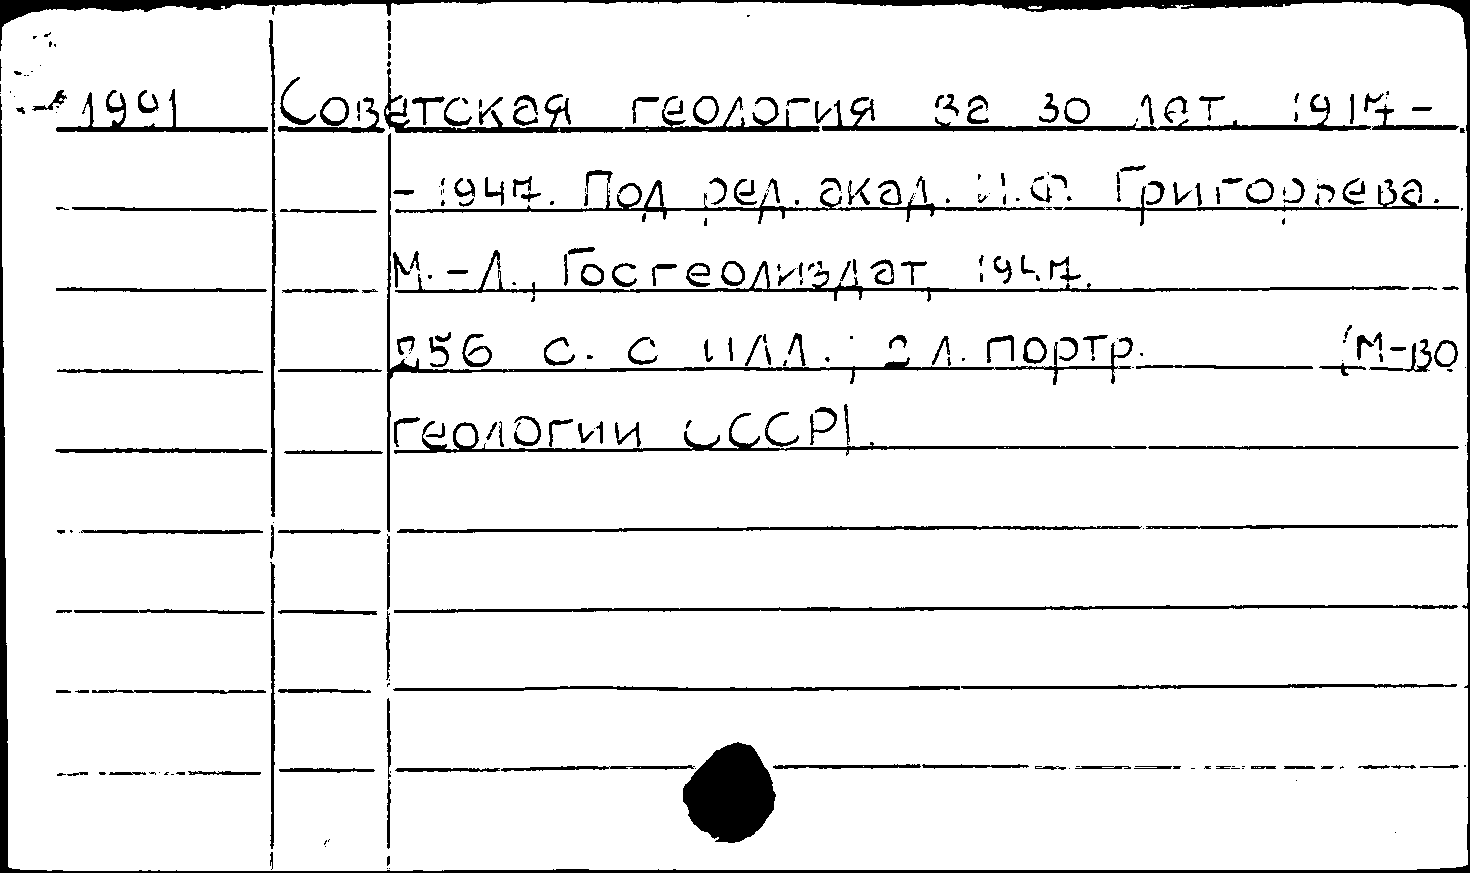 1991 Советская геология за 30 лет. 1917-
- 1947. Под ред. акад. И.Ф. Григорьева.
М.-Л., Госгеолиздат, 1947.
256 с. с илл.; 2 л. портр. (М-во
геологии СССР).